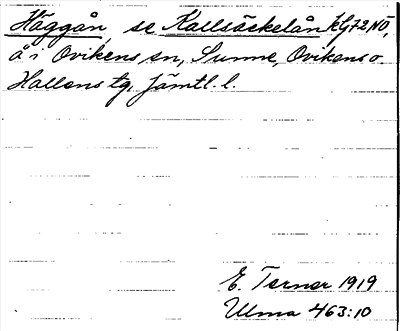 Häggån, se Kallsäckelån kGj72NO,
å i Ovikens sn, Sunne, Ovikens o.
Hallens tg, Jämtl. l.
E. Terner 1919
Ulma 463:10